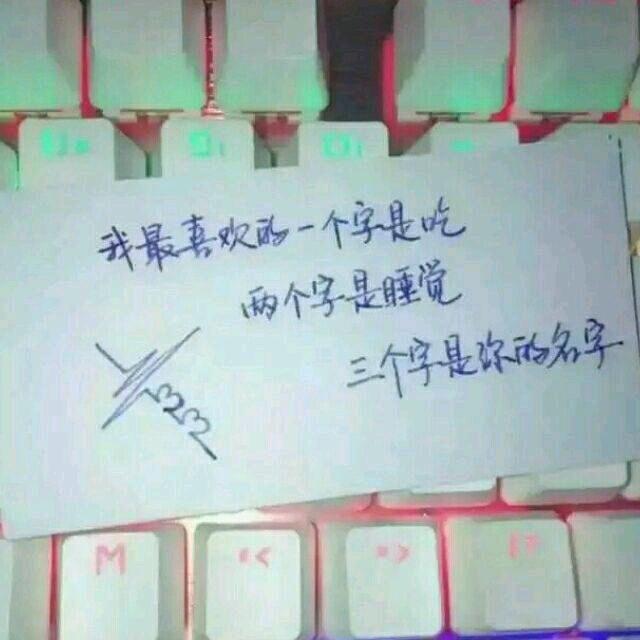 我最喜欢的一个字是吃
两个字是睡觉
三个字是你的名字
M